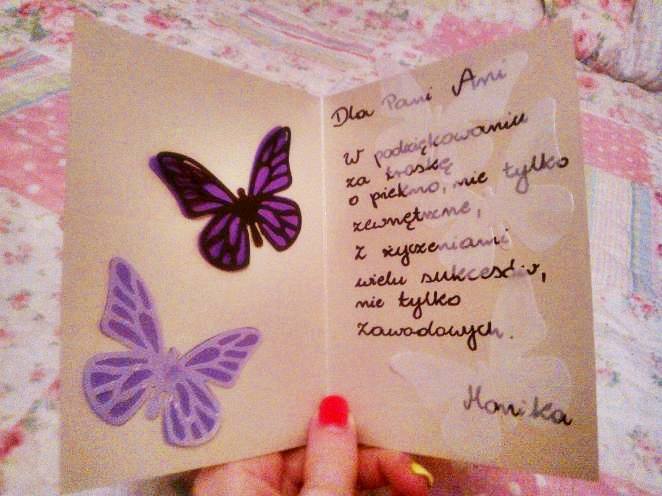 Dla Pani Ani
W podziękowaniu
za troskę
o piękno, nie tylko
zewnętrzne,
z życzeniami
wielu sukcesów,
nie tylko
zawodowych.
Monika